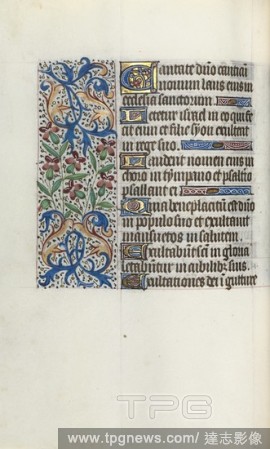 Cantate dño canticũ
nouum laus eius in
ecclesia sanctorum
Letetur israel in eo qui fe
cit eum et filie syon exultent
in rege suo
Laudent nomen eius in
choro in thympano et psalterio
psallant ei
Quia beneplacitũ ẽ dño
in populo suo et exaltauit
mansuetos in salutem
Exultabũt sc̃i in gloria
letabuntur in cubilibus suis
Exultationes dei ĩ gutture
TPG
www.tpgnews.com/ 達志影像